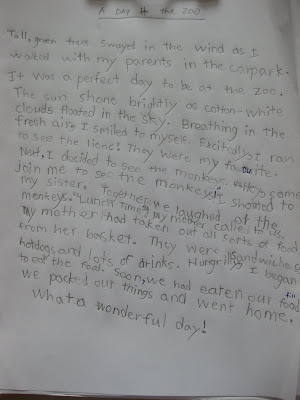 A DAY At the ZOO
Tall, green trees swayed in the wind as I
walked with my parents in the carpark.
It was a perfect day to be at the zoo.
The sun shone brightly as cotton-white
clouds floated in the sky. Breathing in the
fresh air, I smiled to myself. Excitedly, I ran
to see the lions! They were my favourite.
Next, I decided to see the monkeys. "Come
join me to see the monkeys!" I shouted to
my sister. Together, we laughed at the
monkeys. "Lunch Time!" my mother called to us.
My mother had taken out all sorts of food
from her basket. They were sandwiches,
hotdogs and lots of drinks. Hungrily, I began
to eat the food. Soon, we had eaten our fill
food
we packed our things and went home.
What a wonderful day!